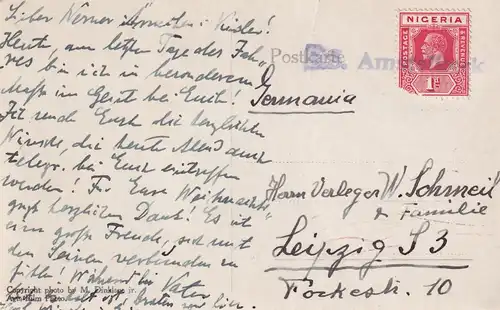 Lieber Werner, Kinder!
Heute, am letzten Tage des Jah-
res bin ich in besonderem
Maße im Geist bei Euch!
Seid auch Ihr die herzlichsten
Wünsche, die heute Abend auch
telegr. bei Euch eintreffen
werden! Für Eure Weihnachts-
grüße herzlichen Dank! Es ist
eine große Freude, sich mit
den Seinen verbunden zu
fühlen! Während bei Vater
ist, braten wir hier.
Copyright photo by M. jr.
Postkarte
NIGERIA
POSTAGE
& REVENUE
1D
Germania
Herrn Verleger W. Schmeil
& Familie
Leipzig S3
Fockestr. 10